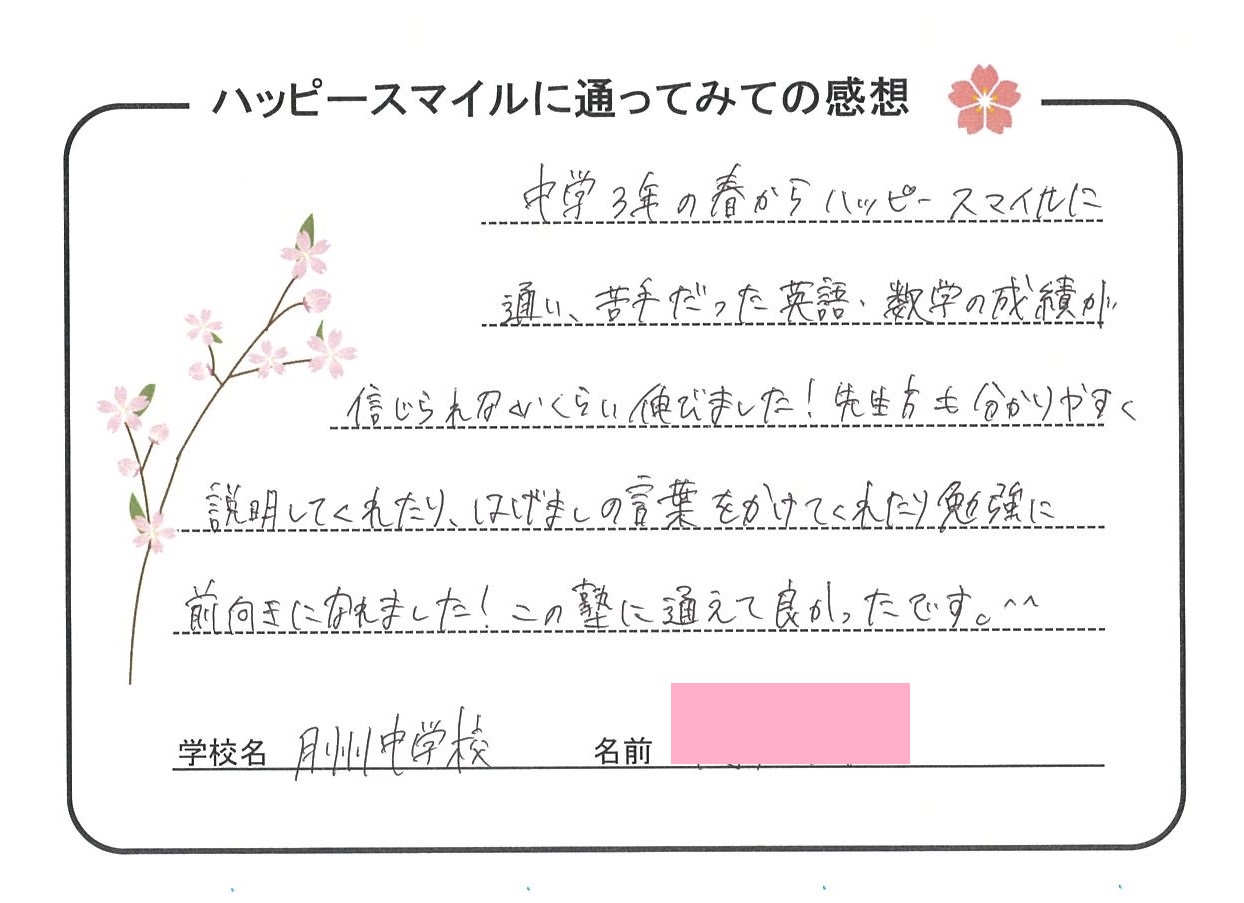 ハッピースマイルに通ってみての感想
中学3年の春からハッピースマイルに
通い、苦手だった英語・数学の成績が
信じられないくらい伸びました！先生方も分かりやすく
説明してくれたり、はげましの言葉をかけてくれたり勉強に
前向きになれました！この塾に通えて良かったです。^^
学校名 月州中学校 名前